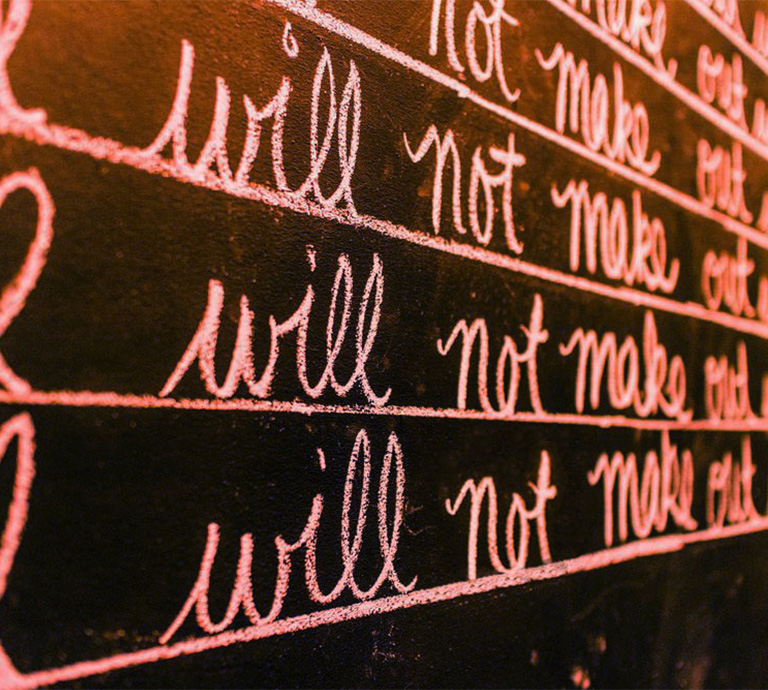 make out
not make out
will not make out
will not make out
will not make out